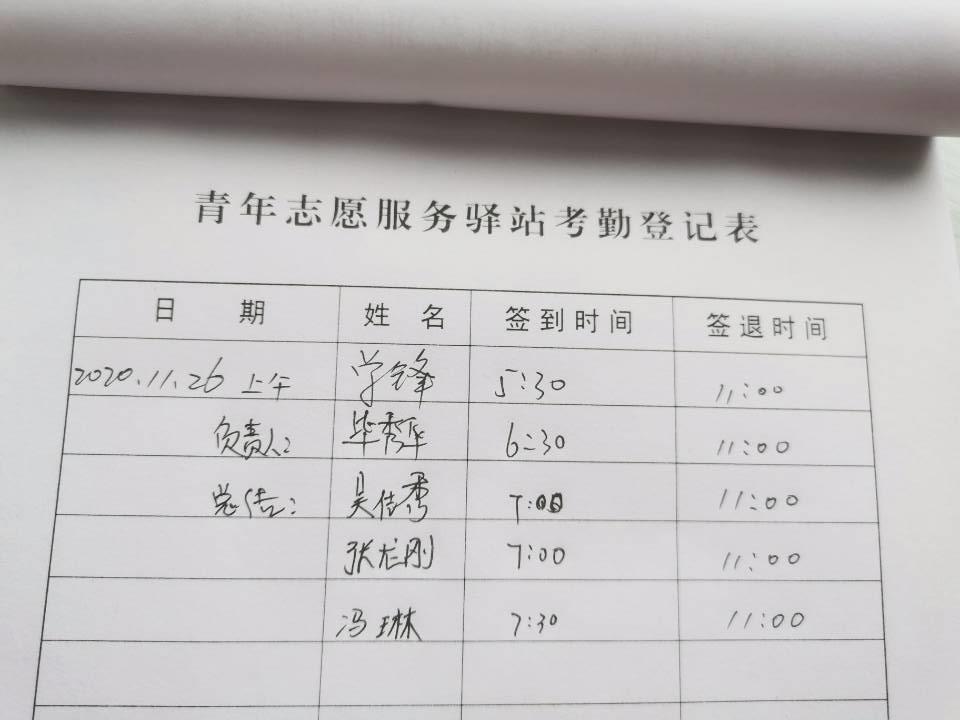 青年志愿服务驿站考勤登记表
日期 姓名 签到时间 签退时间
2020.11.26 上午 学锋 5:30 11:00
负责人: 毕秀华 6:30 11:00
吴佳秀 7:00 11:00
张龙刚 7:00 11:00
冯琳 7:30 11:00